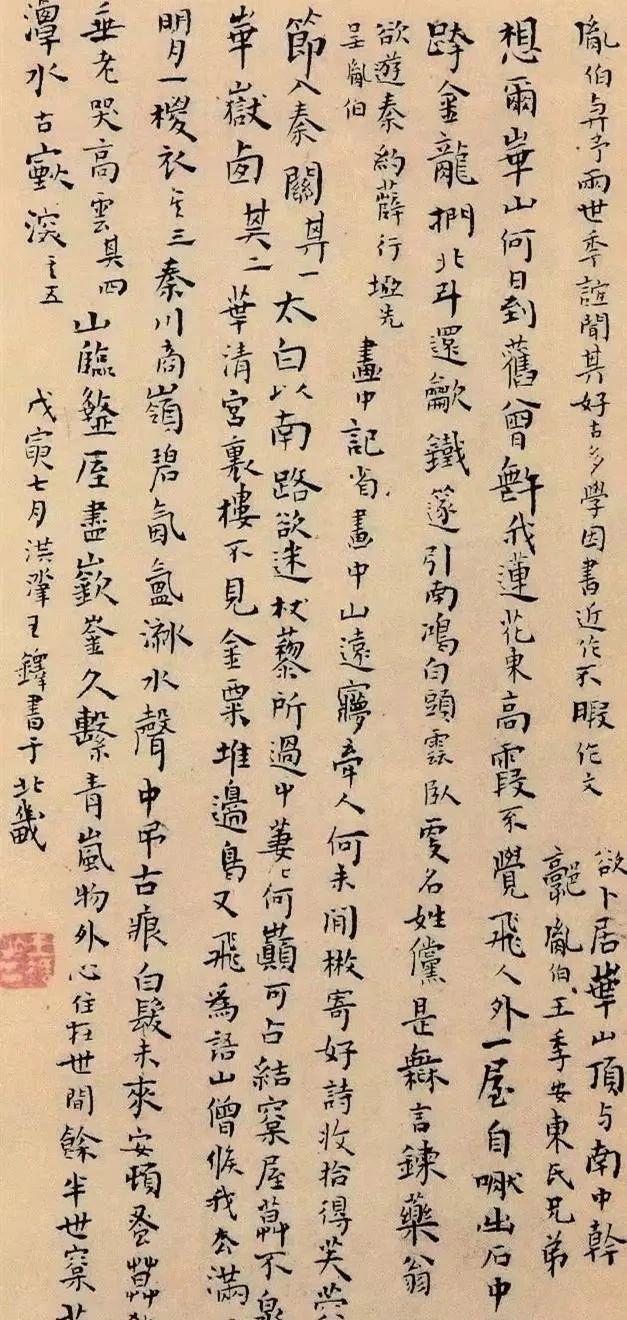 胤伯與予兩世季誼聞其好古多學因書近作不暇作文
欲卜居華山頂与南中幹
鄗胤伯王季安東氏兄弟
想爾崋山何日到舊曾許我蓮花東高霞不覺飛人外一屋自出石中
跨金龍捫北斗還歙鐵篴引南鴻白頭雲臥變名姓儻是無言鍊藥翁
欲遊秦約薛行塢先
呈胤伯
畫中記省畫中山遠夢牽人何未閒楸寄好詩收拾得芙蓉
節入秦關其一太白以南路欲迷杖藜所過中萋々何顛可占結窠屋不
崋嶽卤其二華清宮裏樓不見金粟堆邊鳥又飛為語山僧候我去滿
明月一椶衣其三秦川商嶺碧氤氳水聲中弔古痕白髮未來安頓蚤
垂老哭高雲其四山臨盩厔盡嶔崟久繫青嵐物外心住在世間餘半世窠
潭水古歡深其五
戊寅七月洪肇王鐸書于北畿